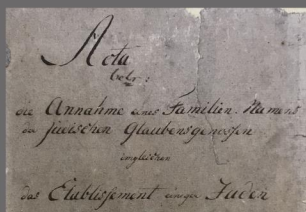 Acta
betr:
die Annahme eines Familien-Namens
der jüdischen Glaubensgenossen
imgleichen
das Etablissement einiger Juden